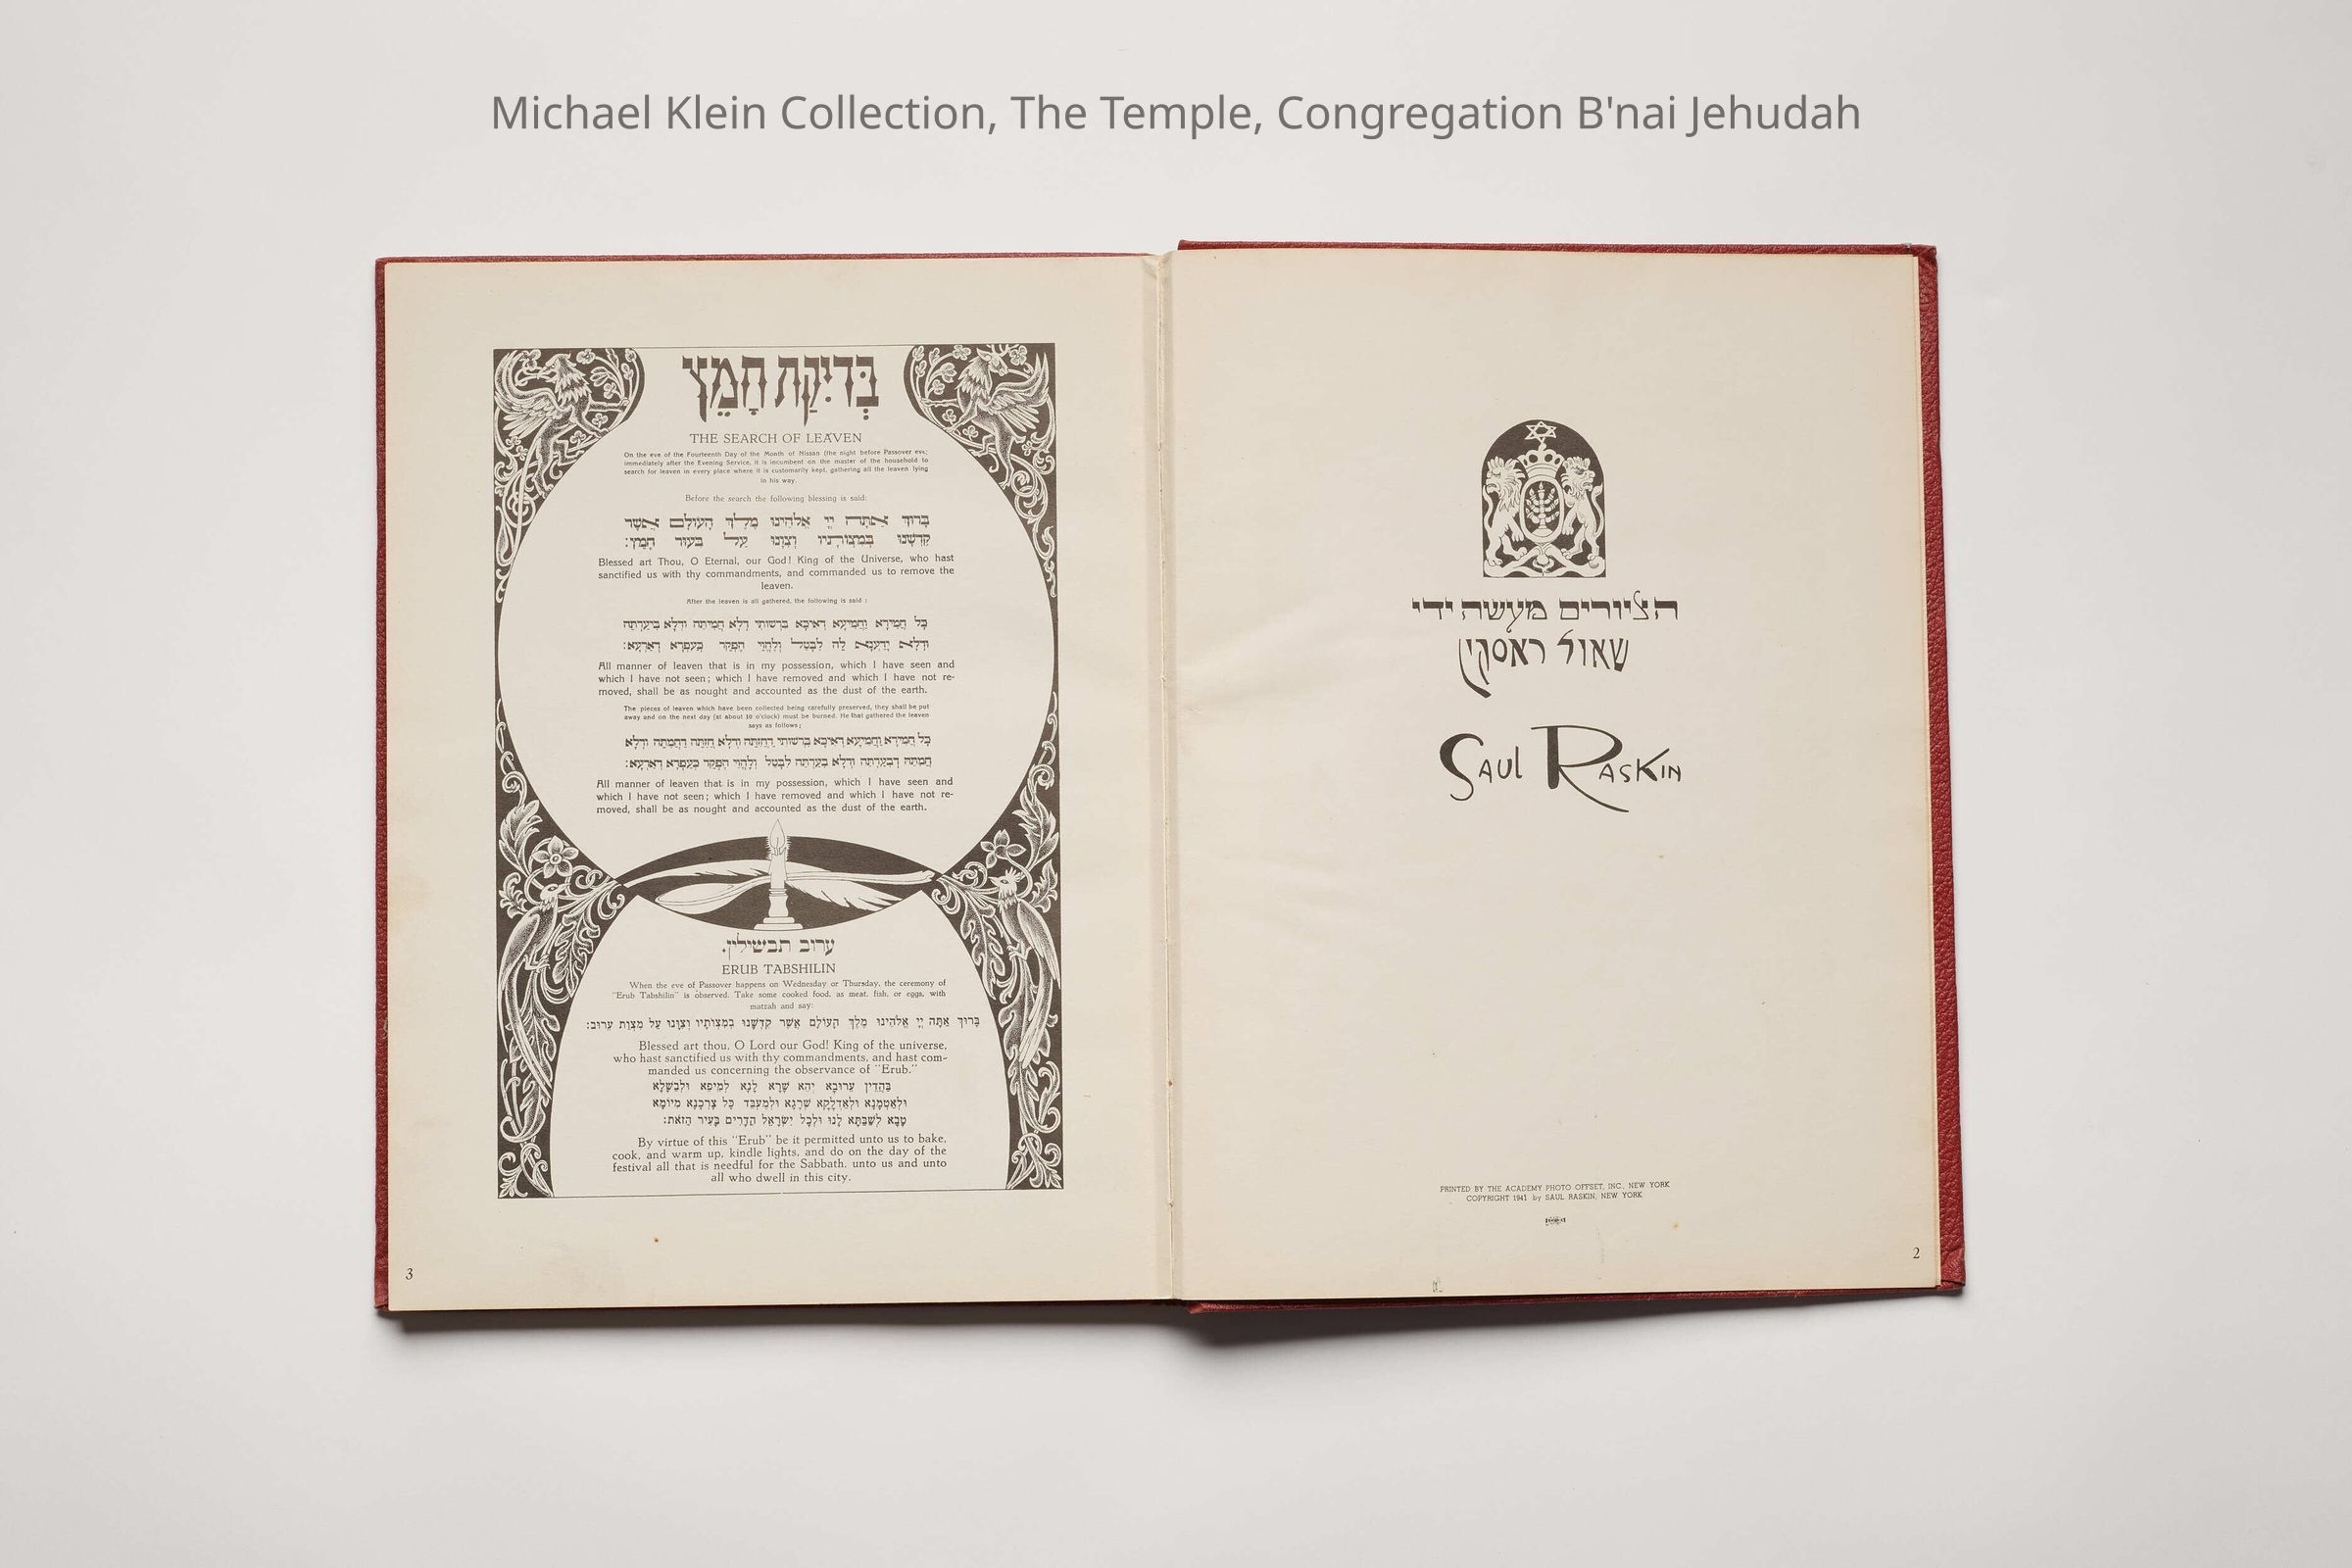 Michael Klein Collection, The Temple, Congregation B'nai Jehudah
הציורים מעשה ידי
שאול ראסקין
SAUL RASKIN
PRINTED BY THE ACADEMY PHOTO OFFSET, INC., NEW YORK
COPYRIGHT 1941 by SAUL RASKIN, NEW YORK
2
בְּדִיקַת חָמֵץ
THE SEARCH OF LEAVEN
On the eve of the Fourteenth Day of the Month of Nissan (the night before Passover eve;
immediately after the Evening Service, it is incumbent on the master of the household to
search for leaven in every place where it is customarily kept, gathering all the leaven lying
in his way.
Before the search the following blessing is said:
בָּרוּךְ אַתָּה יְיָ אֱלֹהֵינוּ מֶלֶךְ הָעוֹלָם אֲשֶׁר
קִדְּשָׁנוּ בְּמִצְוֹתָיו וְצִוָּנוּ עַל בִּעוּר חָמֵץ:
Blessed art Thou, O Eternal, our God! King of the Universe, who hast
sanctified us with thy commandments, and commanded us to remove the
leaven.
After the leaven is all gathered, the following is said :
כָּל חֲמִירָא וַחֲמִיעָא דְּאִיכָּא בִרְשׁוּתִי דְּלָא חֲמִיתֵּהּ וּדְלָא בִיעַרְתֵּהּ
וּדְלָא יָדַעְנָא לֵהּ לִבָּטֵל וְלֶהֱוֵי הֶפְקֵר כְּעַפְרָא דְאַרְעָא:
All manner of leaven that is in my possession, which I have seen and
which I have not seen; which I have removed and which I have not re-
moved, shall be as nought and accounted as the dust of the earth.
The pieces of leaven which have been collected being carefully preserved, they shall be put
away and on the next day (at about 10 o'clock) must be burned. He that gathered the leaven
says as follows;
כָּל חֲמִירָא וַחֲמִיעָא דְּאִיכָּא בִרְשׁוּתִי דַּחֲזִתֵּהּ וּדְלָא חֲזִתֵּהּ דַּחֲמִתֵּהּ וּדְלָא
חֲמִתֵּהּ דְּבִעַרְתֵּהּ וּדְלָא בִעַרְתֵּהּ לִבָּטֵל וְלֶהֱוֵי הֶפְקֵר כְּעַפְרָא דְאַרְעָא:
All manner of leaven that is in my possession, which I have seen and
which I have not seen; which I have removed and which I have not re-
moved, shall be as nought and accounted as the dust of the earth.
ערוב תבשילין.
ERUB TABSHILIN
When the eve of Passover happens on Wednesday or Thursday, the ceremony of
"Erub Tabshilin" is observed. Take some cooked food, as meat, fish, or eggs, with
matzah and say:
בָּרוּךְ אַתָּה יְיָ אֱלֹהֵינוּ מֶלֶךְ הָעוֹלָם אֲשֶׁר קִדְּשָׁנוּ בְּמִצְוֹתָיו וְצִוָּנוּ עַל מִצְוַת עֵרוּב:
Blessed art thou, O Lord our God! King of the universe,
who hast sanctified us with thy commandments, and hast com-
manded us concerning the observance of "Erub."
בַּהֲדֵין עֵרוּבָא יְהֵא שָׁרָא לָנָא לְמֵיפָא וּלְבַשָּׁלָא
וּלְאַטְמָנָא וּלְאַדְלָקָא שְׁרָגָא וּלְמֶעְבַּד כָּל צָרְכָנָא מִיּוֹמָא
טָבָא לְשַׁבַּתָּא לָנוּ וּלְכָל יִשְׂרָאֵל הַדָּרִים בָּעִיר הַזֹּאת:
By virtue of this "Erub" be it permitted unto us to bake,
cook, and warm up, kindle lights, and do on the day of the
festival all that is needful for the Sabbath, unto us and unto
all who dwell in this city.
3